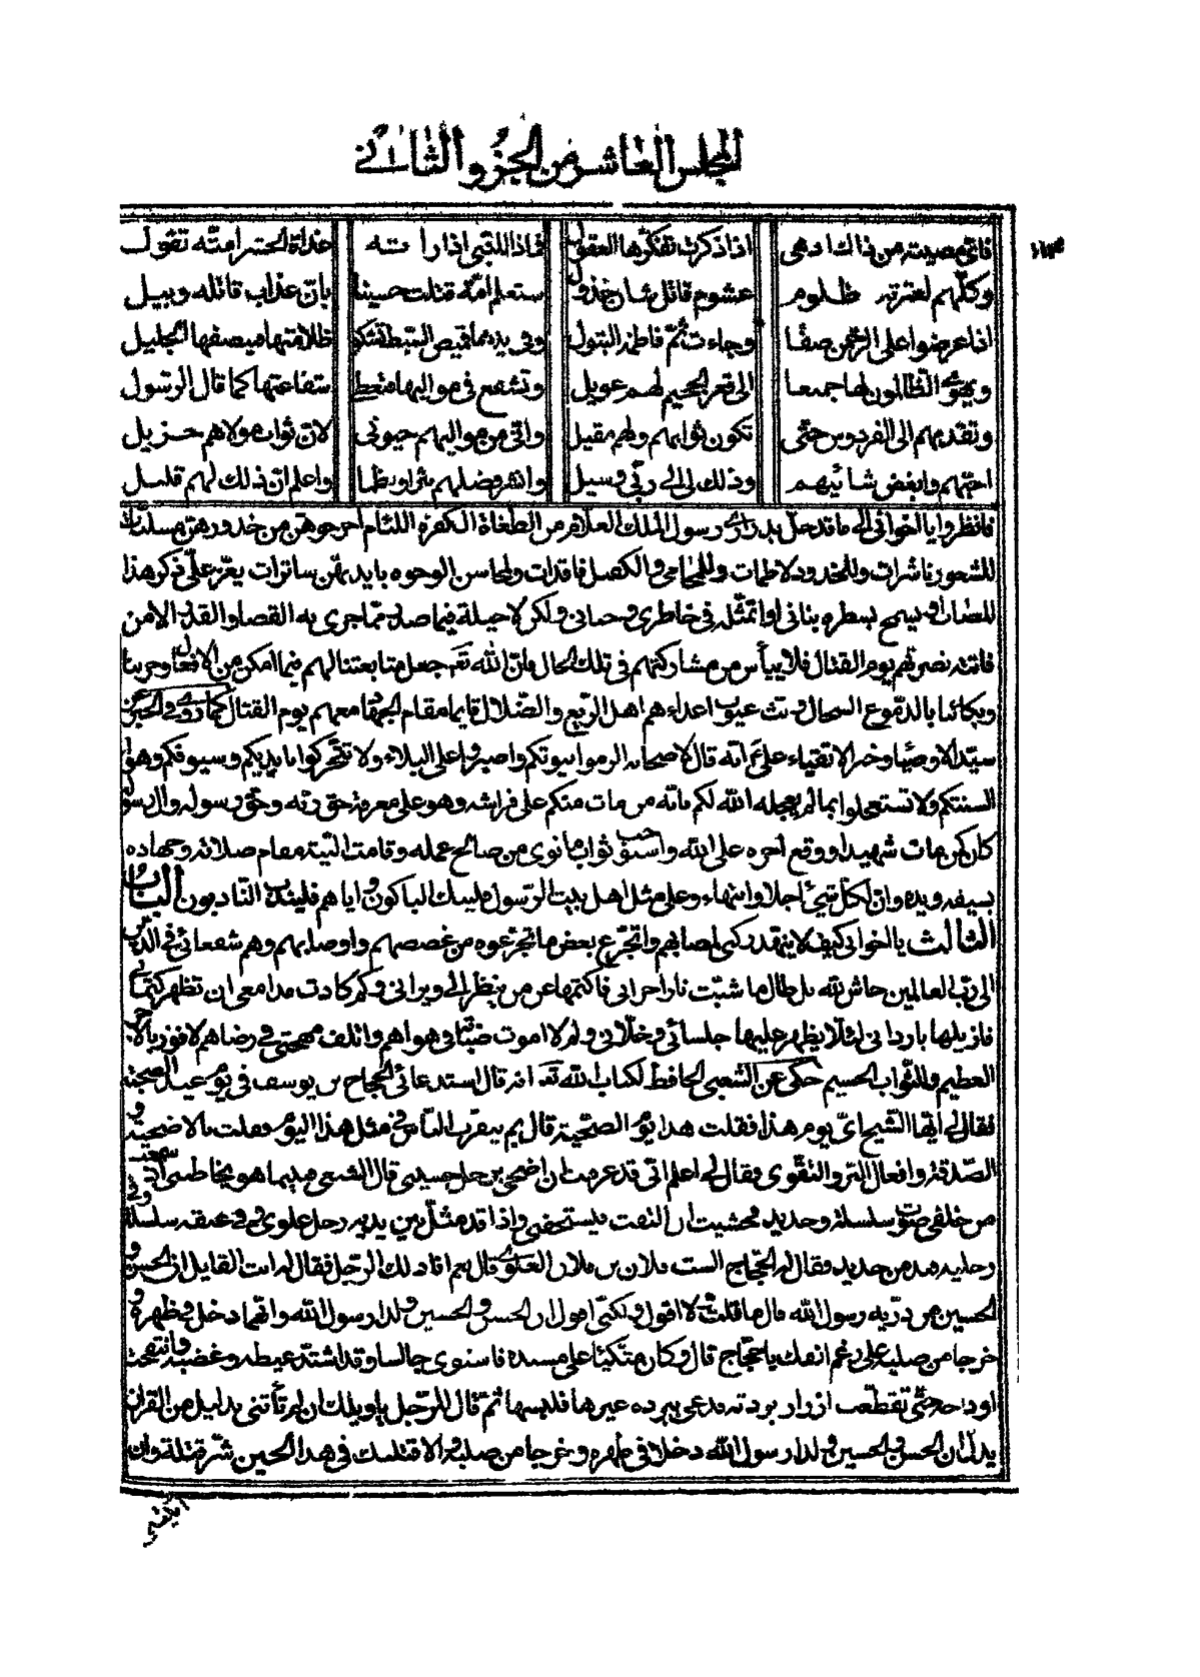 المجلس العاشر من الجزو الثاني
١١٣
فاي مصيبة من ذاك ادهى اذا ذكرت تفكرها العقول فماذا للنبي اذا راته غداة الحشر امته تقول
وكلهم لعترته ظلوم غشوم قاتل شان خذول ستعلم امة قتلت حسينا بان عذاب قاتله وبيل
اذا عرضوا على الرحمن صفا وجاءت ثم فاطم البتول وفي يدها قميص السبط تشكو ظلامتها فينصفها الجليل
ويهوي الظالون لها جميعا الى قعر الجحيم لهم عويل وتشفع في مواليها فتعطى شفاعتها كما قال الرسول
وتقدمهم الى الفردوس حتى تكون ثوابهم ولهم مقيل واني من مواليهم حيوتي لان ثواب مولاهم جزيل
احبهم وابغض شانيهم وذلك لي الى ربي وسيل وانشر فضلهم نثرا ونظما واعلم ان ذلك لهم قليل
فانظروا يا اخواني الى ما قد حل بذراري رسول الملك العلام من الطغاة الكفرة اللئام اخرجوهن من خدورهن مسلبات
للشعور ناشرات وللخدود لاطمات وللمحامي والكفيل فاقدات ولمحاسن الوجوه بايديهن ساترات يعز علي ذكر هذا
المصاب او يسمح بسطره بناني او اتمثله في خاطري وجناني ولكن لا حيلة فيما صار مما جرى به القضا والقدر الا من
فاتته نصرتهم يوم القتال فلا ييأس من مشاركتهم في تلك الحال فان الله تعه جعل متابعتنا لهم فيما امكن من الافعال وحزننا
وبكائنا بالدموع السجال وبث عيوب اعداءهم اهل الزيغ والضلال قايما مقام الجهاد معهم يوم القتال كما روي في الخبر عن
سيد الاوصياء وخير الاتقياء علي ع انه قال لاصحابه الزموا بيوتكم واصبروا على البلاء ولا تتحركوا بايديكم وسيوفكم وهوى
السنتكم ولا تستعجلوا بما لم يعجله الله لكم فانه من مات منكم على فراشه وهو على معرفة حق ربه وحق رسوله وال رسوله
كان كمن مات شهيدا ووقع اجره على الله واستوجب ثواب ما نوى من صالح عمله وقامت النية مقام صلاته وجهاده
بسيفه ويده وان لكل شيء اجلا وانتهاء وعلى مثل اهل بيت الرسول فليبك الباكون واياهم فليندب النادبون الباب
الثالث يا اخواني كيف لا يتقد ركبي لمصابهم واتجرع بعض ما تجرعوه من غصصهم واوصابهم وهم شفعائي في الدارين
الى رب العالمين حاش لله بل طال ما شبت نار احزاني فاكتمها عن من ينظر الي ويراني وكم كادت مدامعي ان تظهر كتماني
فازيلها باردانى لئلا يظهر عليها جلسائي وخلاني ولم لا اموت صبا في هواهم واتلف مهجتي في رضاهم لافوز بالاجر
العظيم والثواب الجسيم حكى عن الشعبي الحافظ لكتاب الله تعه انه قال استدعاني الحجاج بن يوسف في يوم عيد الضحية
فقال لي ايها الشيخ اي يوم هذا فقلت هذا يوم الضحية قال بم يتقرب الناس في مثل هذا اليوم فقلت بالاضحية و
الصدقة وافعال البر والتقوى فقال لي اعلم اني قد عزمت ان اضحي برجل حسيني قال الشعبي فبينما هو يخاطبني اذ سمعت
من خلفي صوت سلسلة وحديد فخشيت ان التفت فيستخفني واذا قد مثل بين يديه رجل علوي وفي عنقه سلسلة
وفي رجليه قيد من حديد فقال له الحجاج الست فلان بن فلان العلوي قال نعم انا ذلك الرجل فقال له انت القايل ان الحسن و
الحسين من ذرية رسول الله قال ما قلت لا اقول ولكني اقول ان الحسن والحسين ولدا رسول الله وانهما دخلا في ظهره و
خرجا من صلبه على رغم انفك يا حجاج قال وكان متكيئا على مسنده فاستوى جالسا وقد اشتد غيظه وغضبه وانتفخت
اوداجه حتى تقطعت ازرار بردته فدعى ببرده غيرها فلبسها ثم قال للرجل يا ويلك ان لم تأتني بدليل من القران
يدل ان الحسن والحسين ولدا رسول الله دخلا في ظهره وخرجا من صلبه والا قتلتك في هذا الحين شر قتلة وان